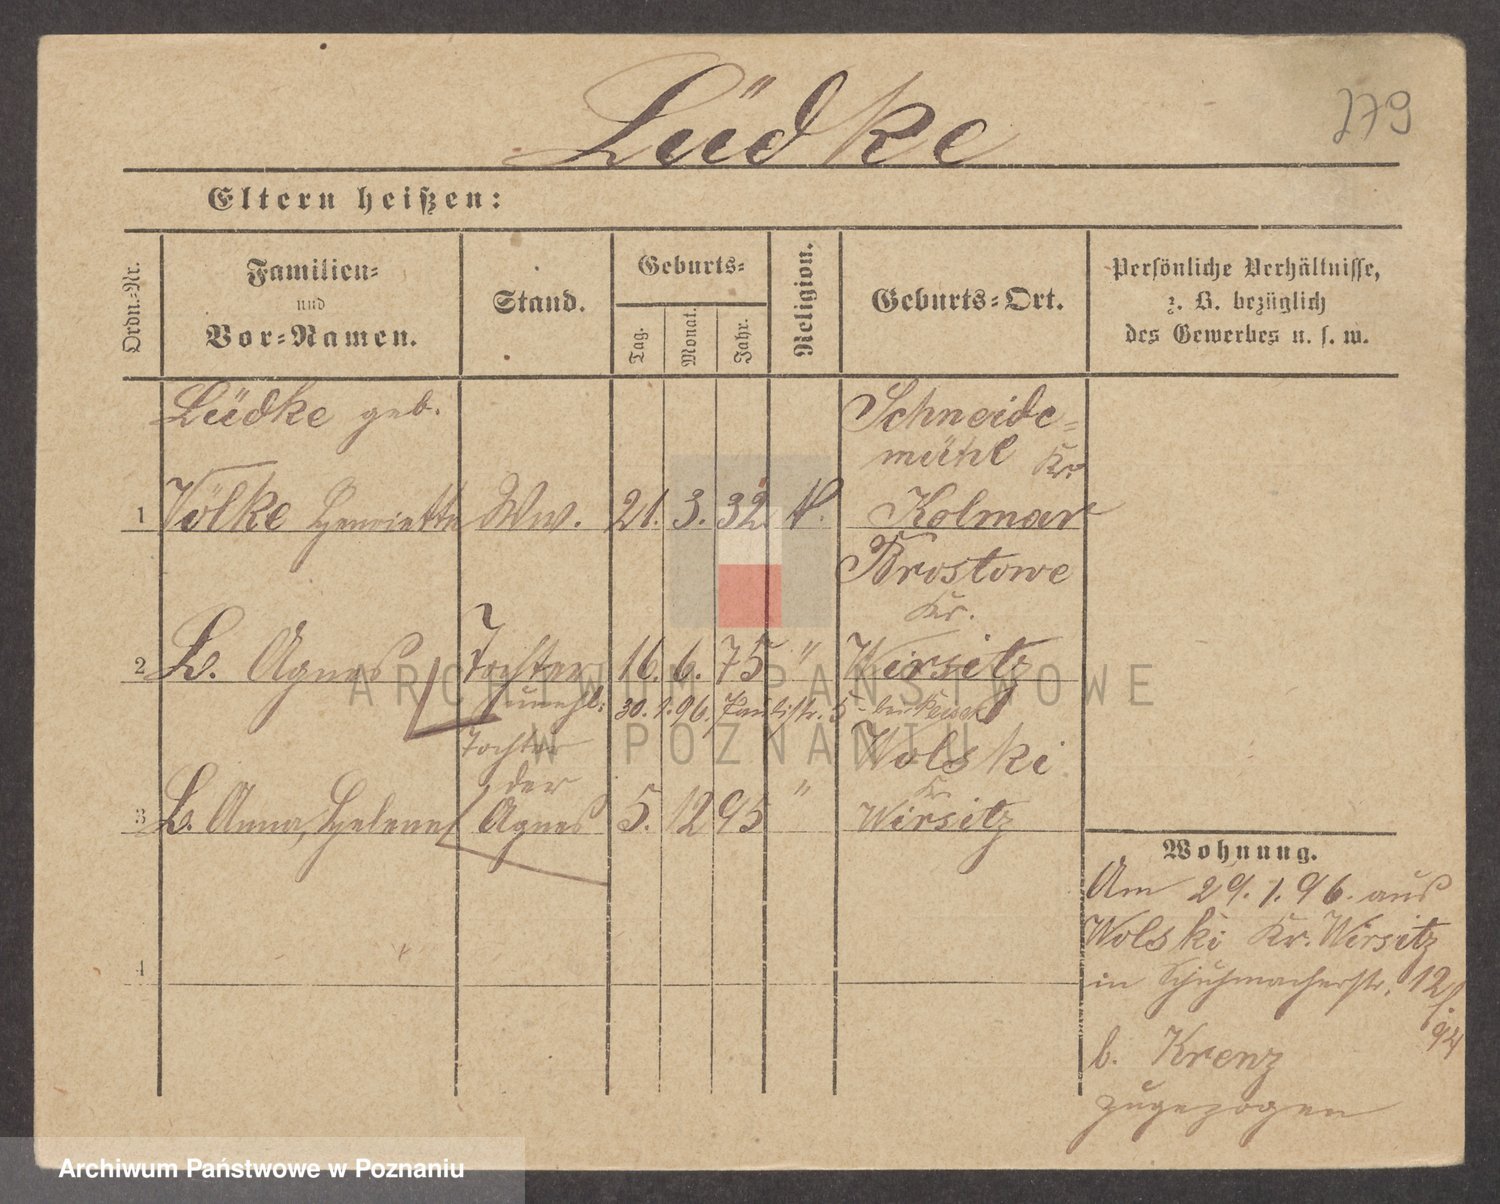 279
Lüdke
Eltern heißen:
Ordn.-Nr.
Familien-
und
Vor-Namen.
Stand.
Geburts-
Tag.
Monat.
Jahr.
Religion.
Geburts-Ort.
Persönliche Verhältnisse,
z. B. bezüglich
des Gewerbes u. s. w.
Lüdke geb.
Schneide-
mühl Kr.
1 Völke Henriette Ww. 21. 3. 32. Kolmar
Brostowe
Kr.
2 L. Agnes Tochter 16. 6. 75 " Wirsitz
30. 1. 96. Paulistr. 5 bei
Tochter Wolski
der Kr.
3 L. Anna, Helene Agnes 5. 12 95 " Wirsitz
4
Wohnung.
Am 29. 1. 96. aus
Wolski Kr. Wirsitz
in Schuhmacherstr. 12
b. Krenz
zugezogen
ARCHIWUM PAŃSTWOWE
W POZNANIU
Archiwum Państwowe w Poznaniu